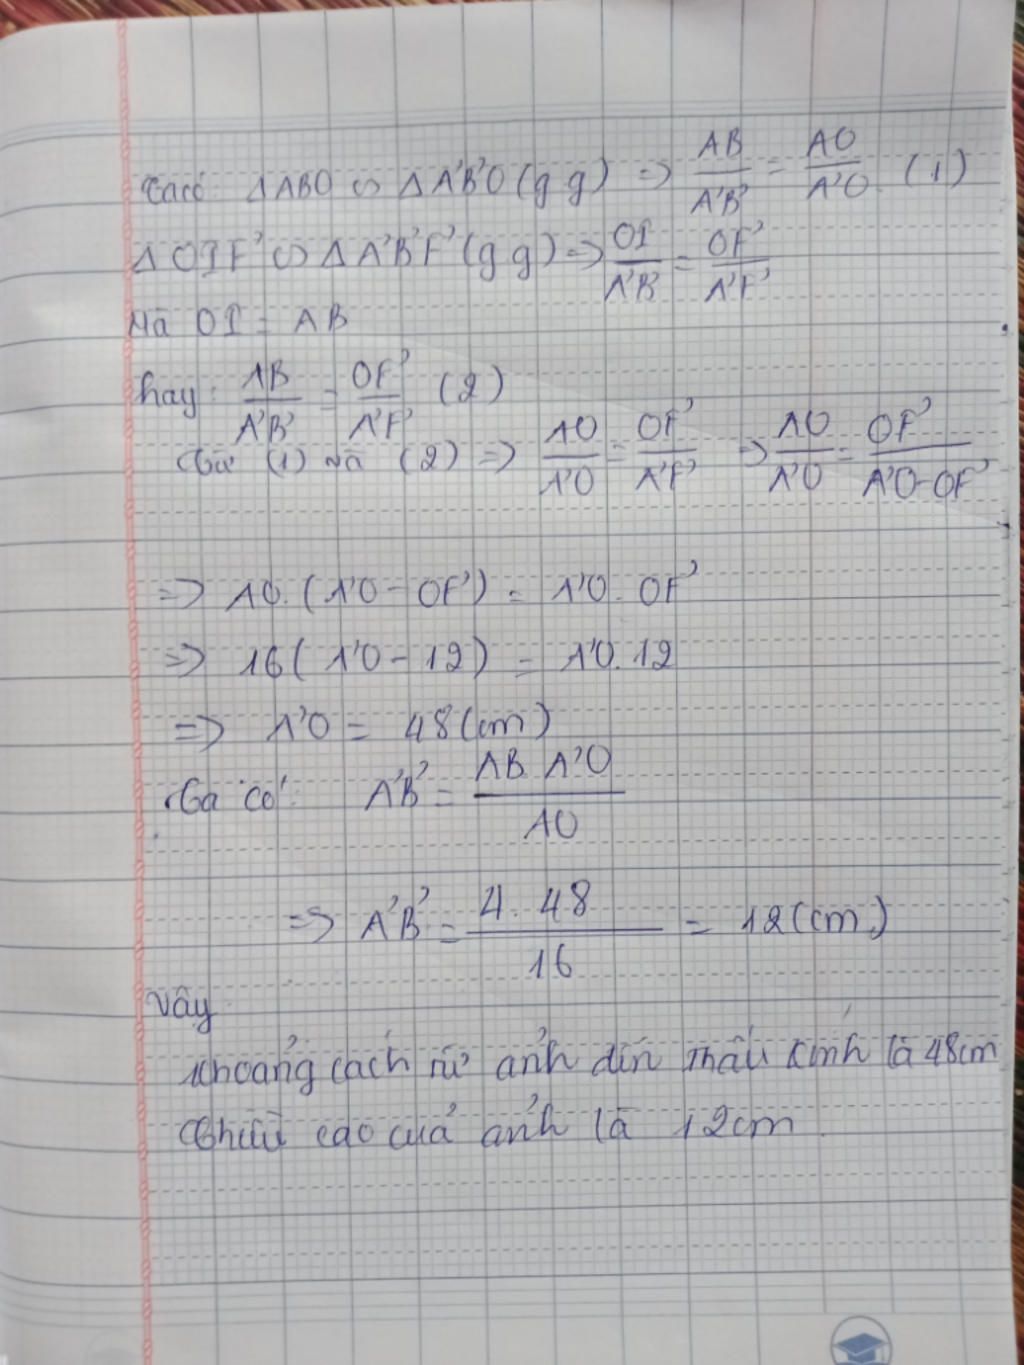 Ta có: ΔABO ∽ ΔA'B'O (g g) => AB/A'B' = AO/A'O (1)
ΔOIF' ∽ ΔA'B'F' (g g) => OI/A'B' = OF'/A'F'
Mà OI = AB
hay: AB/A'B' = OF'/A'F' (2)
Từ (1) và (2) => AO/A'O = OF'/A'F' => AO/A'O = OF'/A'O-OF'
=> AO.(A'O - OF') = A'O. OF'
=> 16(A'O - 12) = A'O.12
=> A'O = 48(cm)
Ta có: A'B' = AB.A'O/AO
=> A'B' = 4.48/16 = 12(cm)
Vậy
Khoảng cách từ ảnh đến thấu kính là 48cm
Chiều cao của ảnh là 12cm.